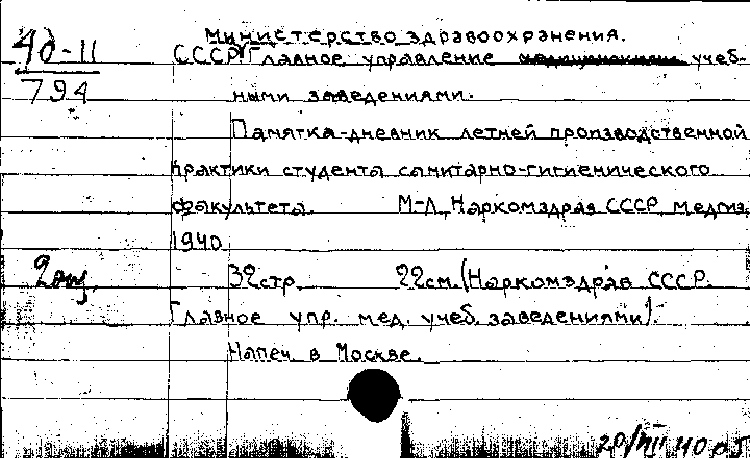 Министерство здравоохранения.
4д-11
СССР. Главное управление учеб-
794
ными заведениями.
Памятка-дневник летней производственной
практики студента санитарно-гигиенического
факультета. М-Л, Наркомздрав СССР, Медгиз,
1940
2 экз. 32 стр. 22 см. (Наркомздрав СССР.
Главное упр. мед. учеб. заведениями).
Напеч. в Москве.
20/VII 40